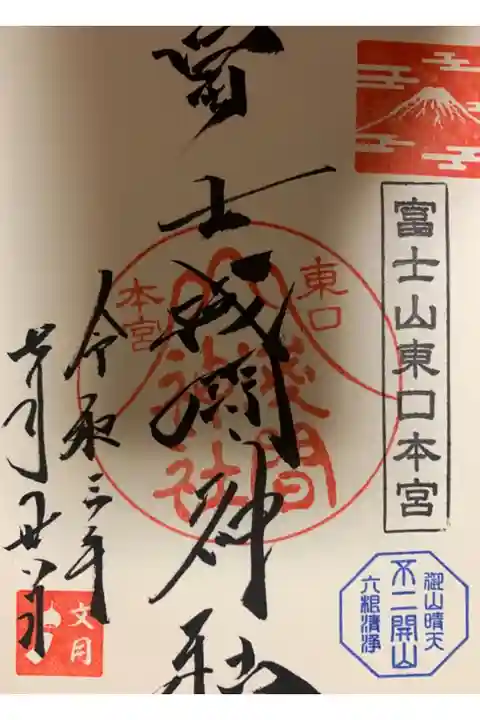 富士山東口本宮
御山晴天
不二開山
六根清浄
冨士浅間神社
東口
本宮
淺間
神社
令和三年
七月廿
文月